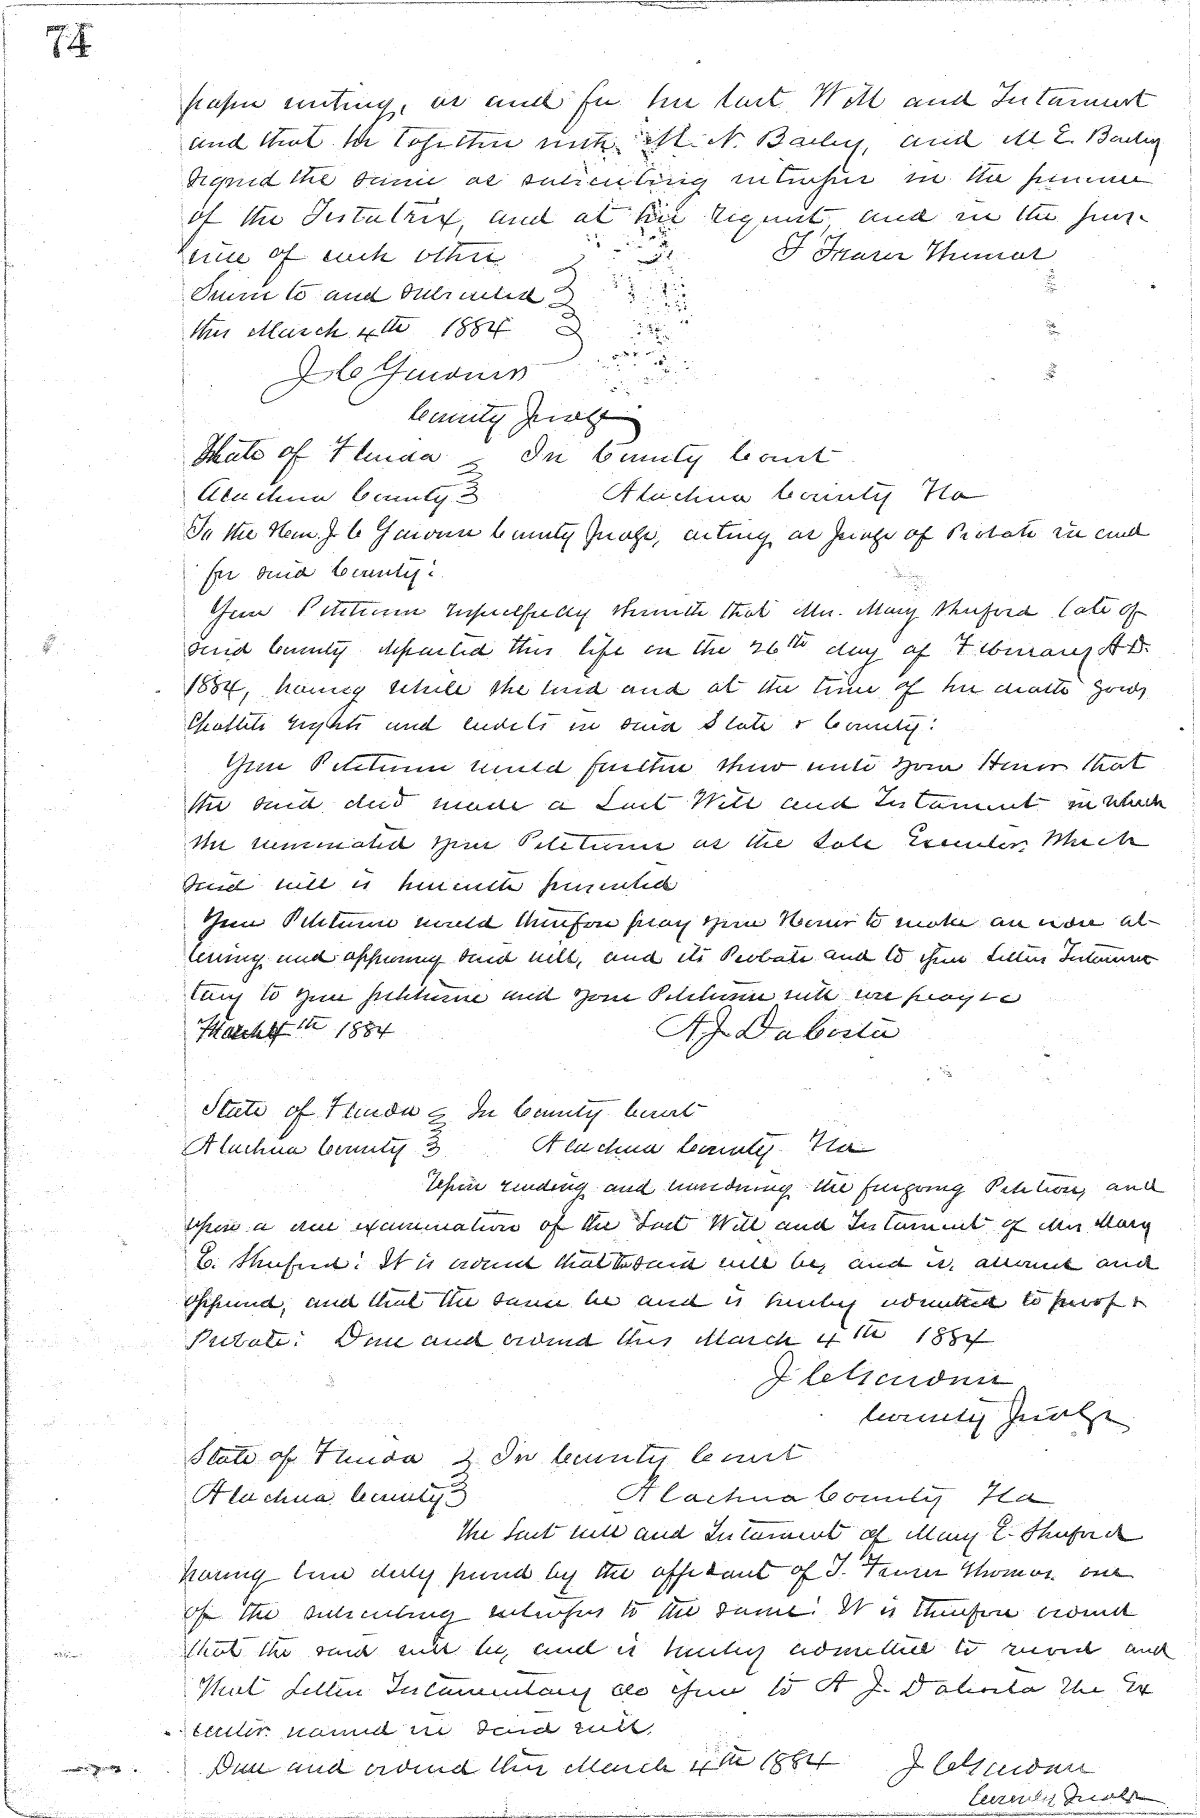 74
paper writing, as and for her last Will and Testament
and that he together with M. N. Bailey, and M E. Bailey
signed the same as subscribing witnesses in the presence
of the Testatrix, and at her request, and in the pres-
ence of each other
T Fraser Thomas
Sworn to and subscribed
this March 4th 1884
J C Gardner
County Judge
State of Florida In County Court
Alachua County Alachua County Fla
To the Hon. J C Gardner County Judge, acting as Judge of Probate in and
for said County:
Your Petitioner respectfully sheweth that Mrs. Mary Shuford late of
said County departed this life on the 26th day of February A.D.
1884, having while she lived and at the time of her death goods
Chattels rights and credits in said State & County:
Your Petitioner would further show unto your Honor that
the said decd made a Last Will and Testament in which
she nominated your Petitioner as the Sole Executor, Which
said will is herewith presented
Your Petitioner would therefore pray your Honor to make an order al-
lowing and approving said will, and its Probate and to issue Letters Testamen
tary to your petitioner and your Petitioner will ever pray &c
March 4th 1884 A. J. DaCosta
State of Florida In County Court
Alachua County Alachua County Fla
Upon reading and considering the foregoing Petition, and
upon a due examination of the Last Will and Testament of Mrs Mary
E. Shuford: It is ordered that the said will be, and is, allowed and
approved, and that the same be and is hereby admitted to proof &
Probate: Done and ordered this March 4th 1884
J C Gardner
County Judge
State of Florida In County Court
Alachua County Alachua County Fla
The Last will and Testament of Mary E. Shuford
having been duly proved by the affidavit of T. Fraser Thomas one
of the subscribing witnesses to the same: It is therefore ordered
that the said will be, and is hereby admitted to record and
that Letters Testamentary do issue to A J. DaCosta the Ex
ecutor named in said will.
Done and ordered this March 4th 1884 J C Gardner
County Judge